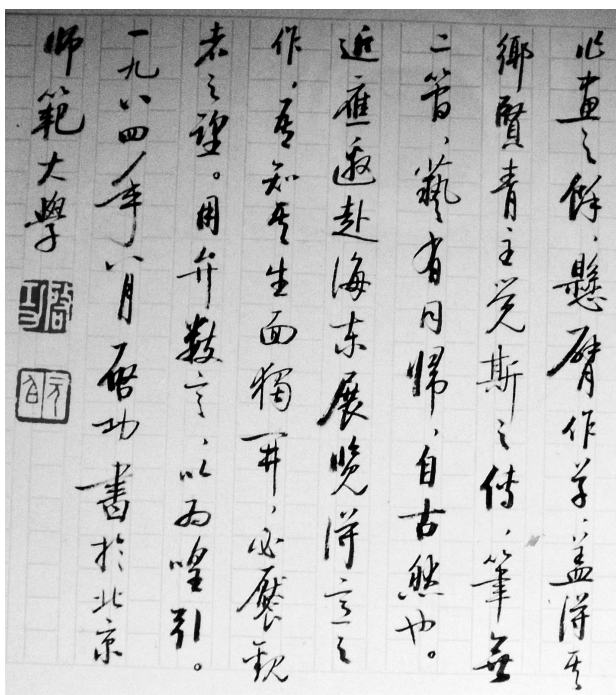 作画之餘、懸臂作草、盖得其
鄉賢青主觉斯之傳、筆無
二管、藝有同歸、自古然也。
近應邀赴海东展覽得意之
作、吾知其生面獨开、必饜觀
者之望。用弁数言、以为喤引。
一九八四年八月 啓功 書於北京
师範大學
啓功
元白